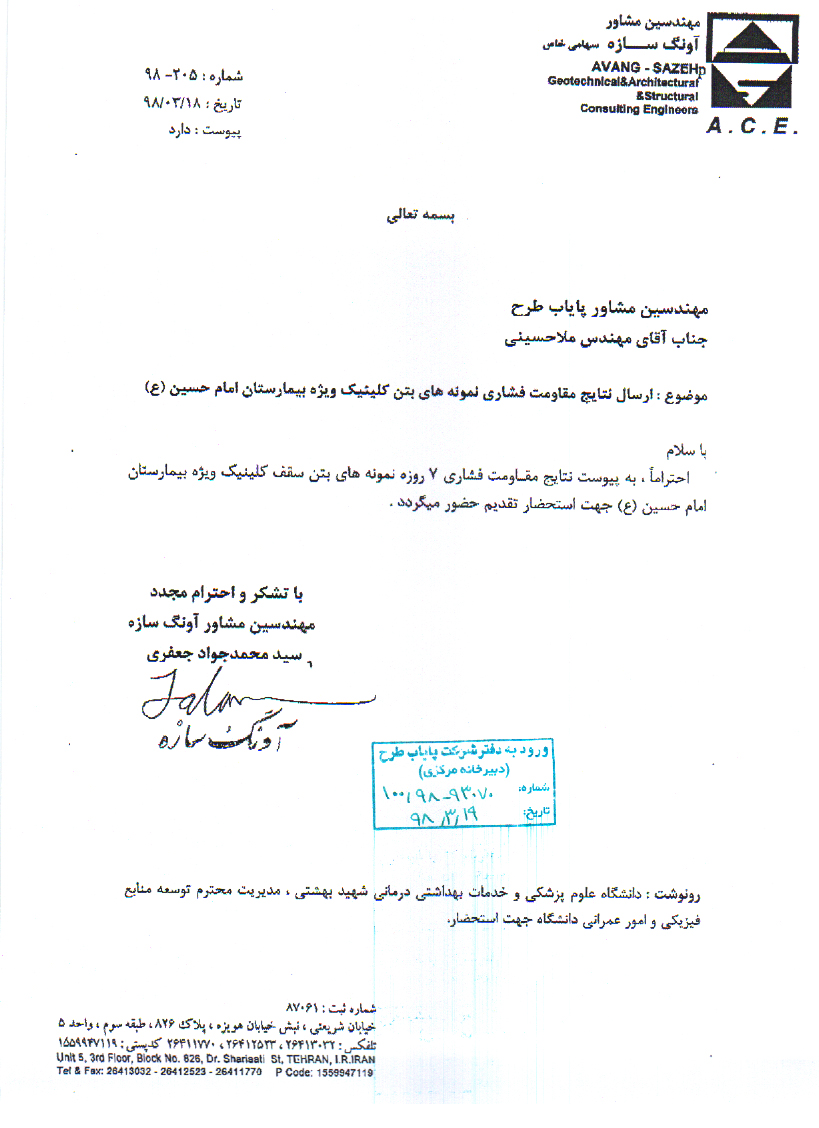 مهندسین مشاور
آونگ سازه سهامی خاص
AVANG - SAZEH
Geotechnical&Architectural
&Structural
Consulting Engineers
A.C.E.
شماره : ۲۰۵- ۹۸
تاریخ : ۹۸/۰۳/۱۸
پیوست : دارد
بسمه تعالی
مهندسین مشاور پایاب طرح
جناب آقای مهندس ملاحسینی
موضوع : ارسال نتایج مقاومت فشاری نمونه های بتن کلینیک ویژه بیمارستان امام حسین (ع)
با سلام
احتراماً ، به پیوست نتایج مقاومت فشاری ۷ روزه نمونه های بتن سقف کلینیک ویژه بیمارستان
امام حسین (ع) جهت استحضار تقدیم حضور میگردد .
با تشکر و احترام مجدد
مهندسین مشاور آونگ سازه
سید محمدجواد جعفری
آونگ سازه
ورود به دفتر شرکت پایاب طرح
(دبیرخانه مرکزی)
شماره: ۱۰۰/۹۸-۹۳۰۷۰
تاریخ: ۹۸/۳/۱۹
رونوشت : دانشگاه علوم پزشکی و خدمات بهداشتی درمانی شهید بهشتی ، مدیریت محترم توسعه منابع
فیزیکی و امور عمرانی دانشگاه جهت استحضار.
شماره ثبت : ۸۷۰۶۱
خیابان شریعتی ، نبش خیابان هویزه ، پلاک ۸۲۶، طبقه سوم ، واحد ۵
تلفکس : ۲۶۴۱۳۰۳۲ ، ۲۶۴۱۲۵۲۳ ، ۲۶۴۱۱۷۷۰ کدپستی : ۱۵۵۹۹۴۷۱۱۹
Unit 5, 3rd Floor, Block No. 826, Dr. Shariaati St, TEHRAN, I.R.IRAN
Tel & Fax: 26413032 - 26412523 - 26411770 P Code: 1559947119